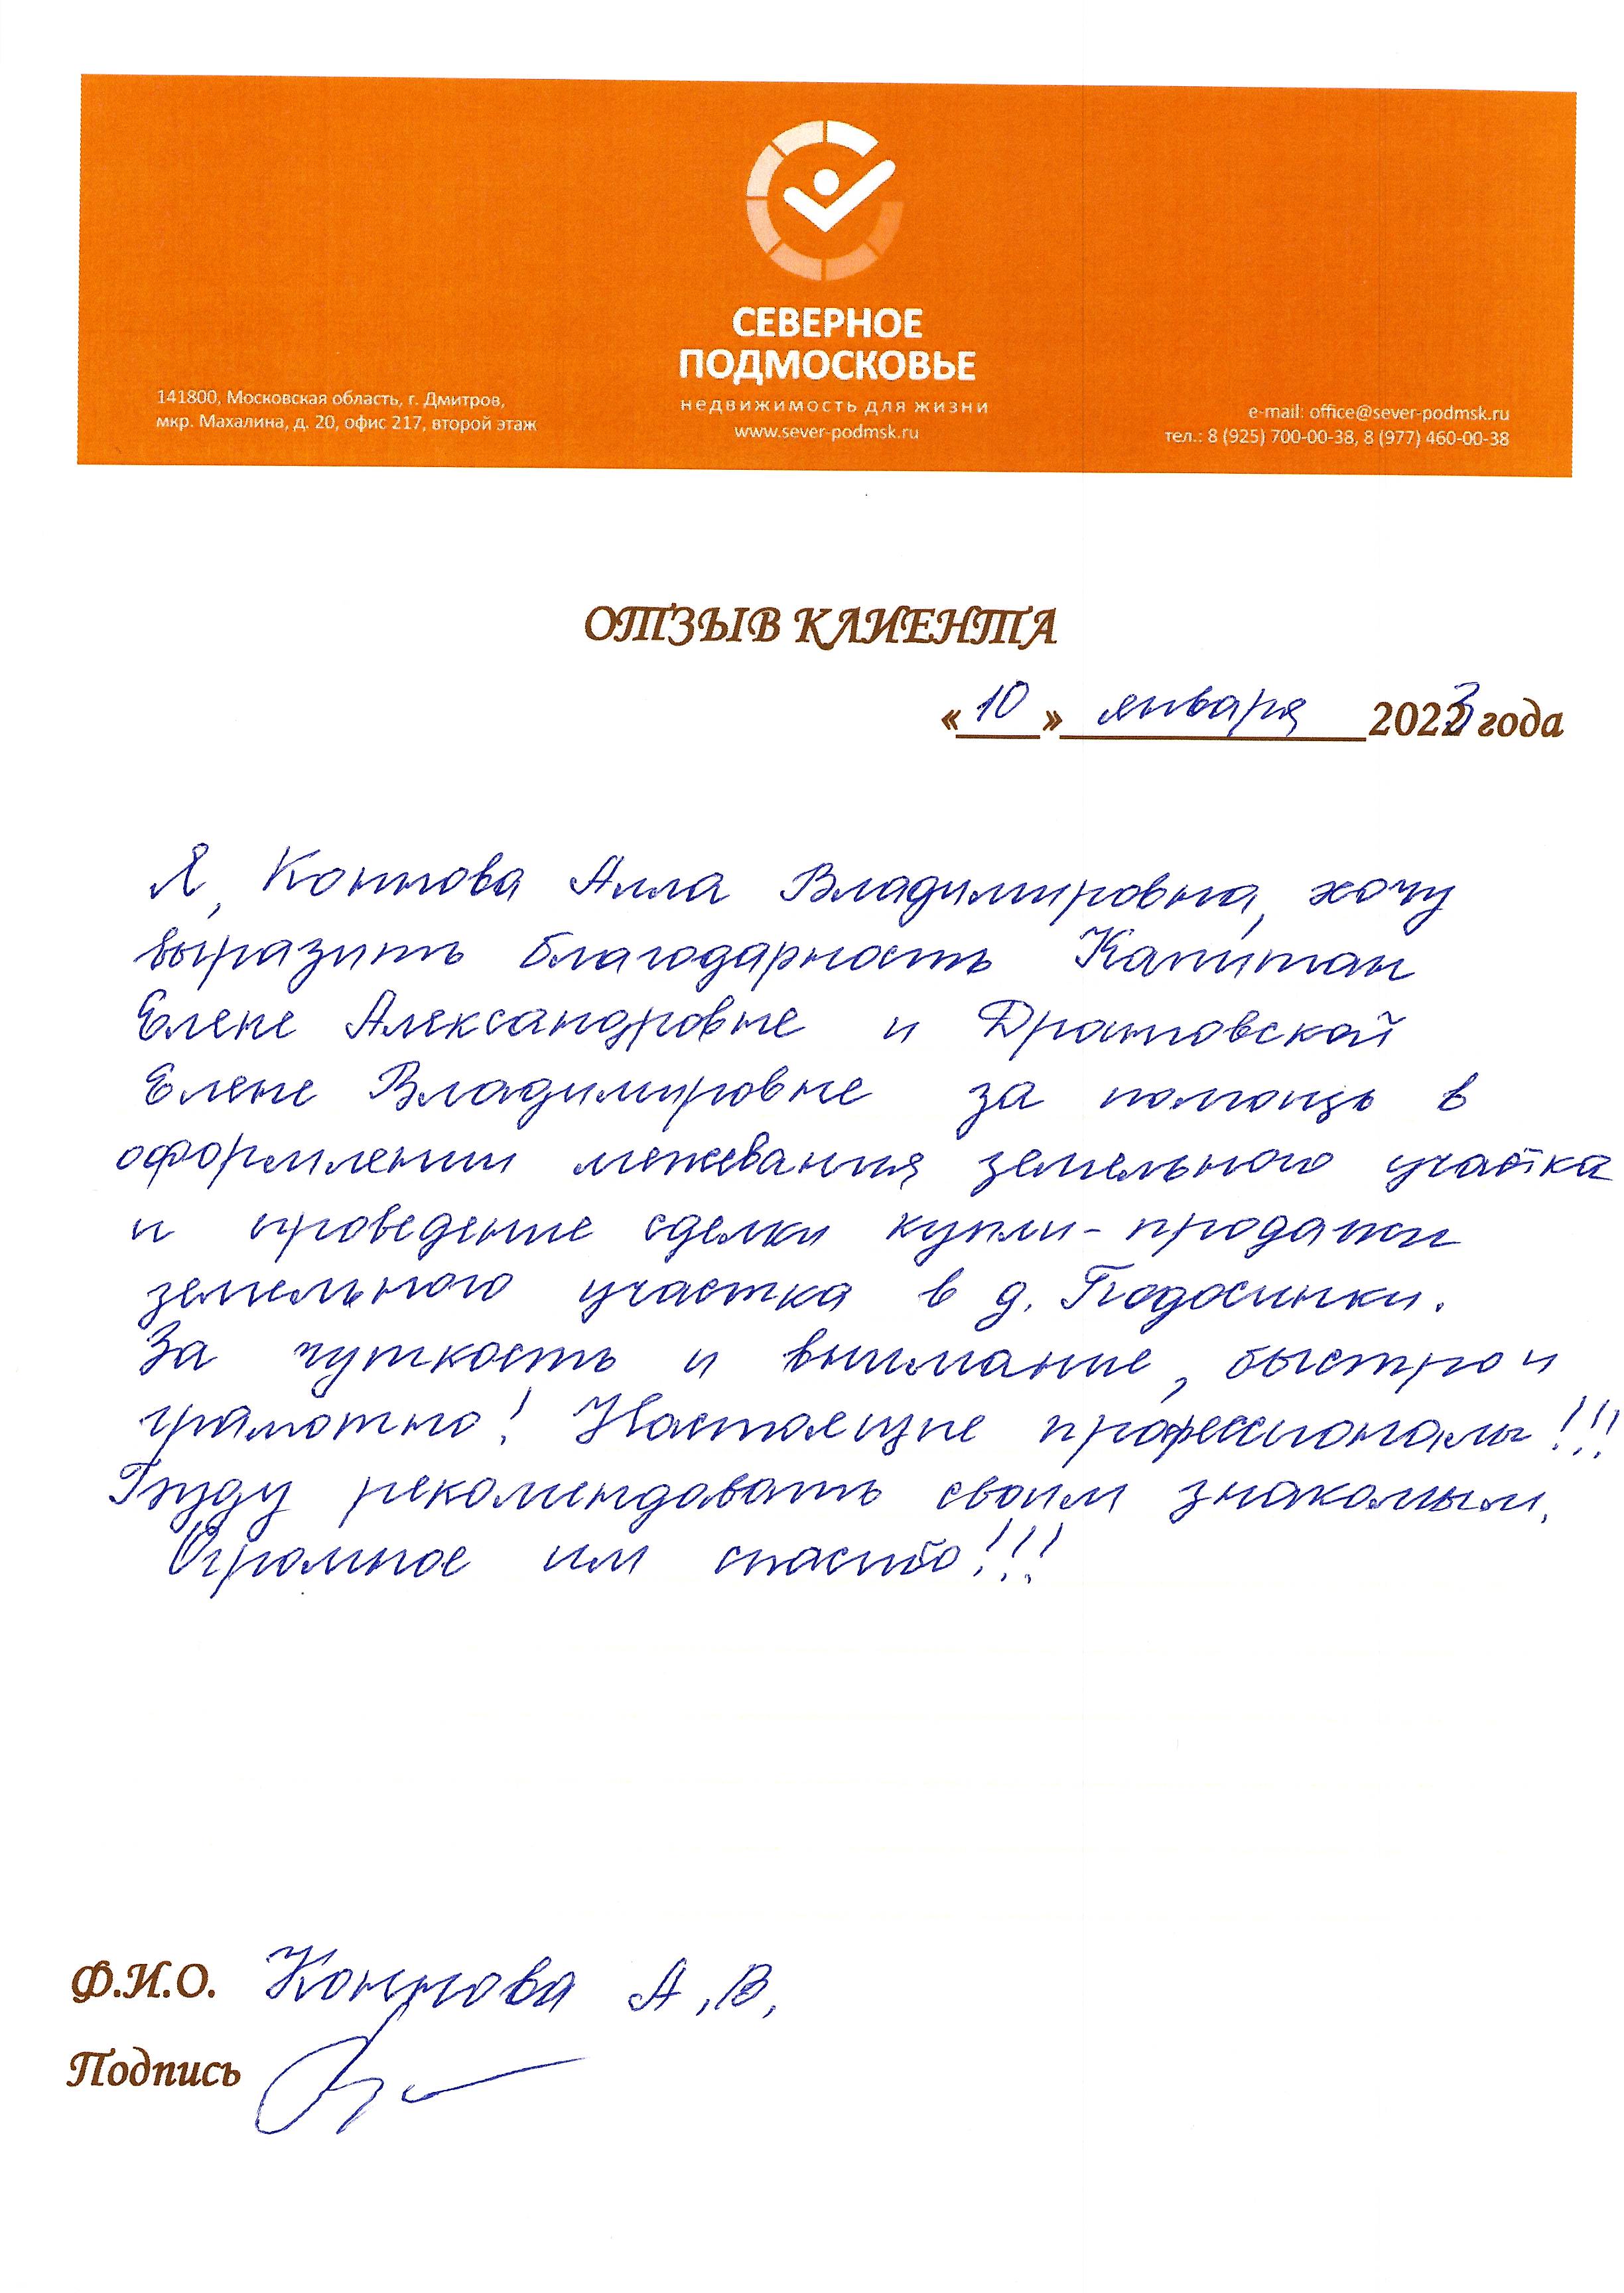 СЕВЕРНОЕ
ПОДМОСКОВЬЕ
недвижимость для жизни
www.sever-podmsk.ru
141800, Московская область, г. Дмитров,
мкр. Махалина, д. 20, офис 217, второй этаж
e-mail: office@sever-podmsk.ru
тел.: 8 (925) 700-00-38, 8 (977) 460-00-38
ОТЗЫВ КЛИЕНТА
«10» января 2023 года
Я, Алла Владимировна, хочу
выразить благодарность Капитан
Елене Александровне и Дратовской
Елене Владимировне за помощь в
оформлении межевания земельного участка
и проведение сделки купли-продажи
земельного участка в д. Подосинки.
За чуткость и внимание, быстро и
грамотно! Настоящие профессионалы!!!
Буду рекомендовать своим знакомым.
Огромное им спасибо!!!
Ф.И.О. А.В.
Подпись